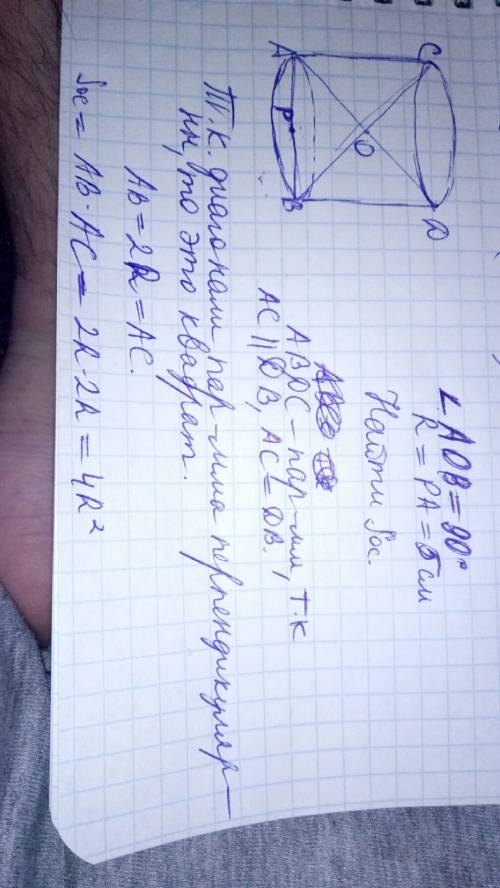 A
C
P
O
B
D
∠AOB = 90°
R = PA = 5 см
Найти Sос.
ABDC - пар-мм, т.к
AC || DB, AC = DB.
Т.к. диагонали пар-мма перпендикуляр-
ны, то это квадрат.
AB = 2R = AC.
Sос = AB · AC = 2R · 2R = 4R²